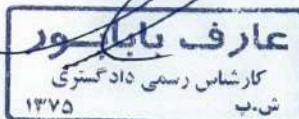 عارف باباپور
کارشناس رسمی دادگستری
ش.پ ۱۳۷۵